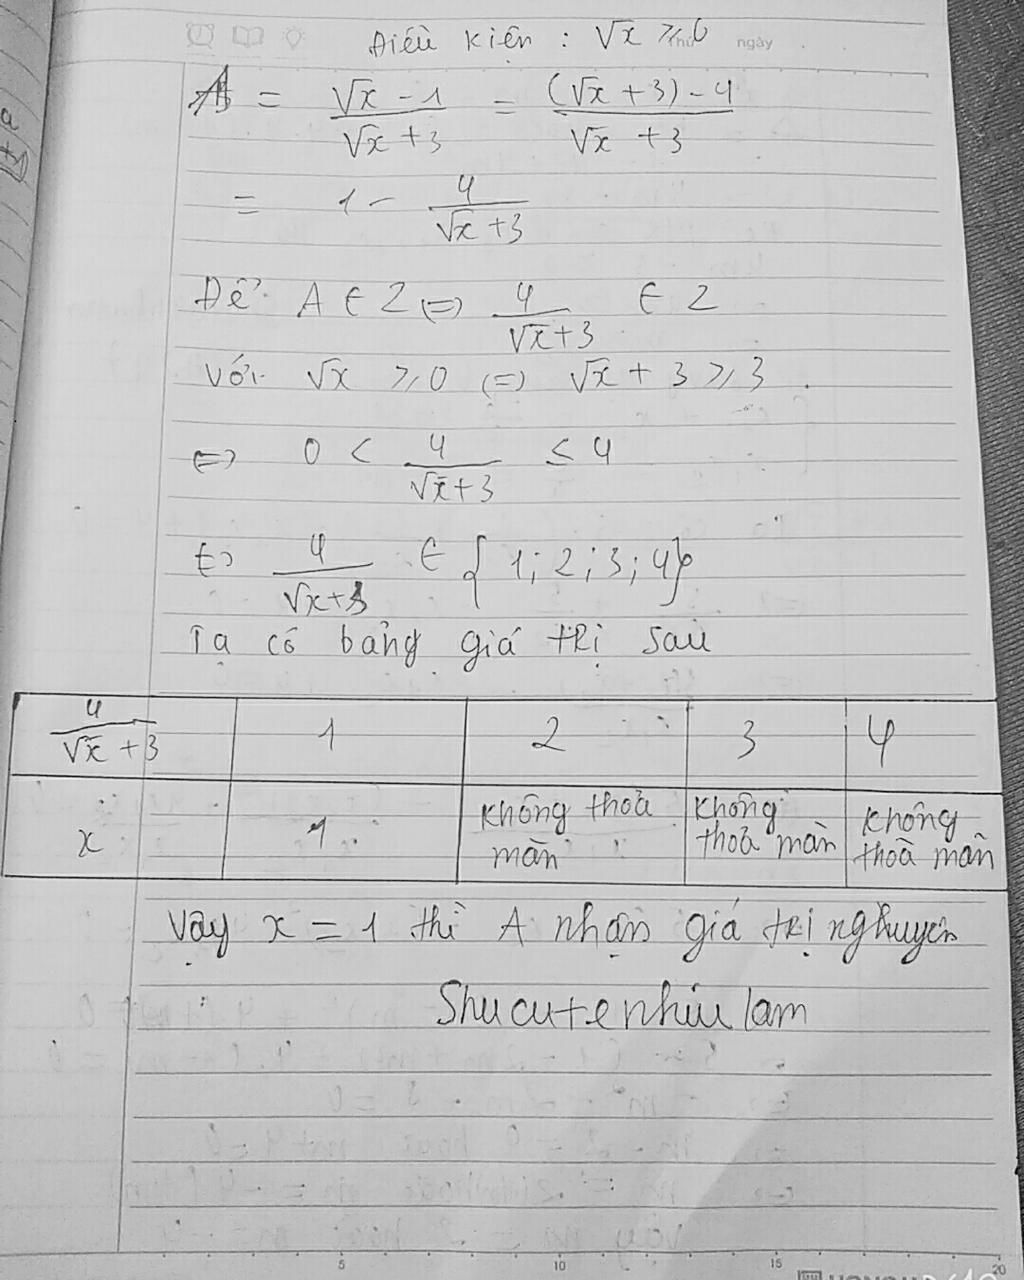 Điều kiện : √x ⩾ 0
ngày
A = (√x - 1)/(√x + 3) = ((√x + 3) - 4)/(√x + 3)
= 1 - 4/(√x + 3)
Để A ∈ Z <=> 4/(√x + 3) ∈ Z
Với √x ⩾ 0 <=> √x + 3 ⩾ 3
<=> 0 < 4/(√x + 3) ≤ 4
<=> 4/(√x + 3) ∈ { 1; 2; 3; 4}
Ta có bảng giá trị sau
4/(√x + 3) 1 2 3 4
x 1 Không thoả mãn Không thoả mãn Không thoả mãn
Vậy x = 1 thì A nhận giá trị nghuyên
Shu cute nhìu lam
5 10 15 20